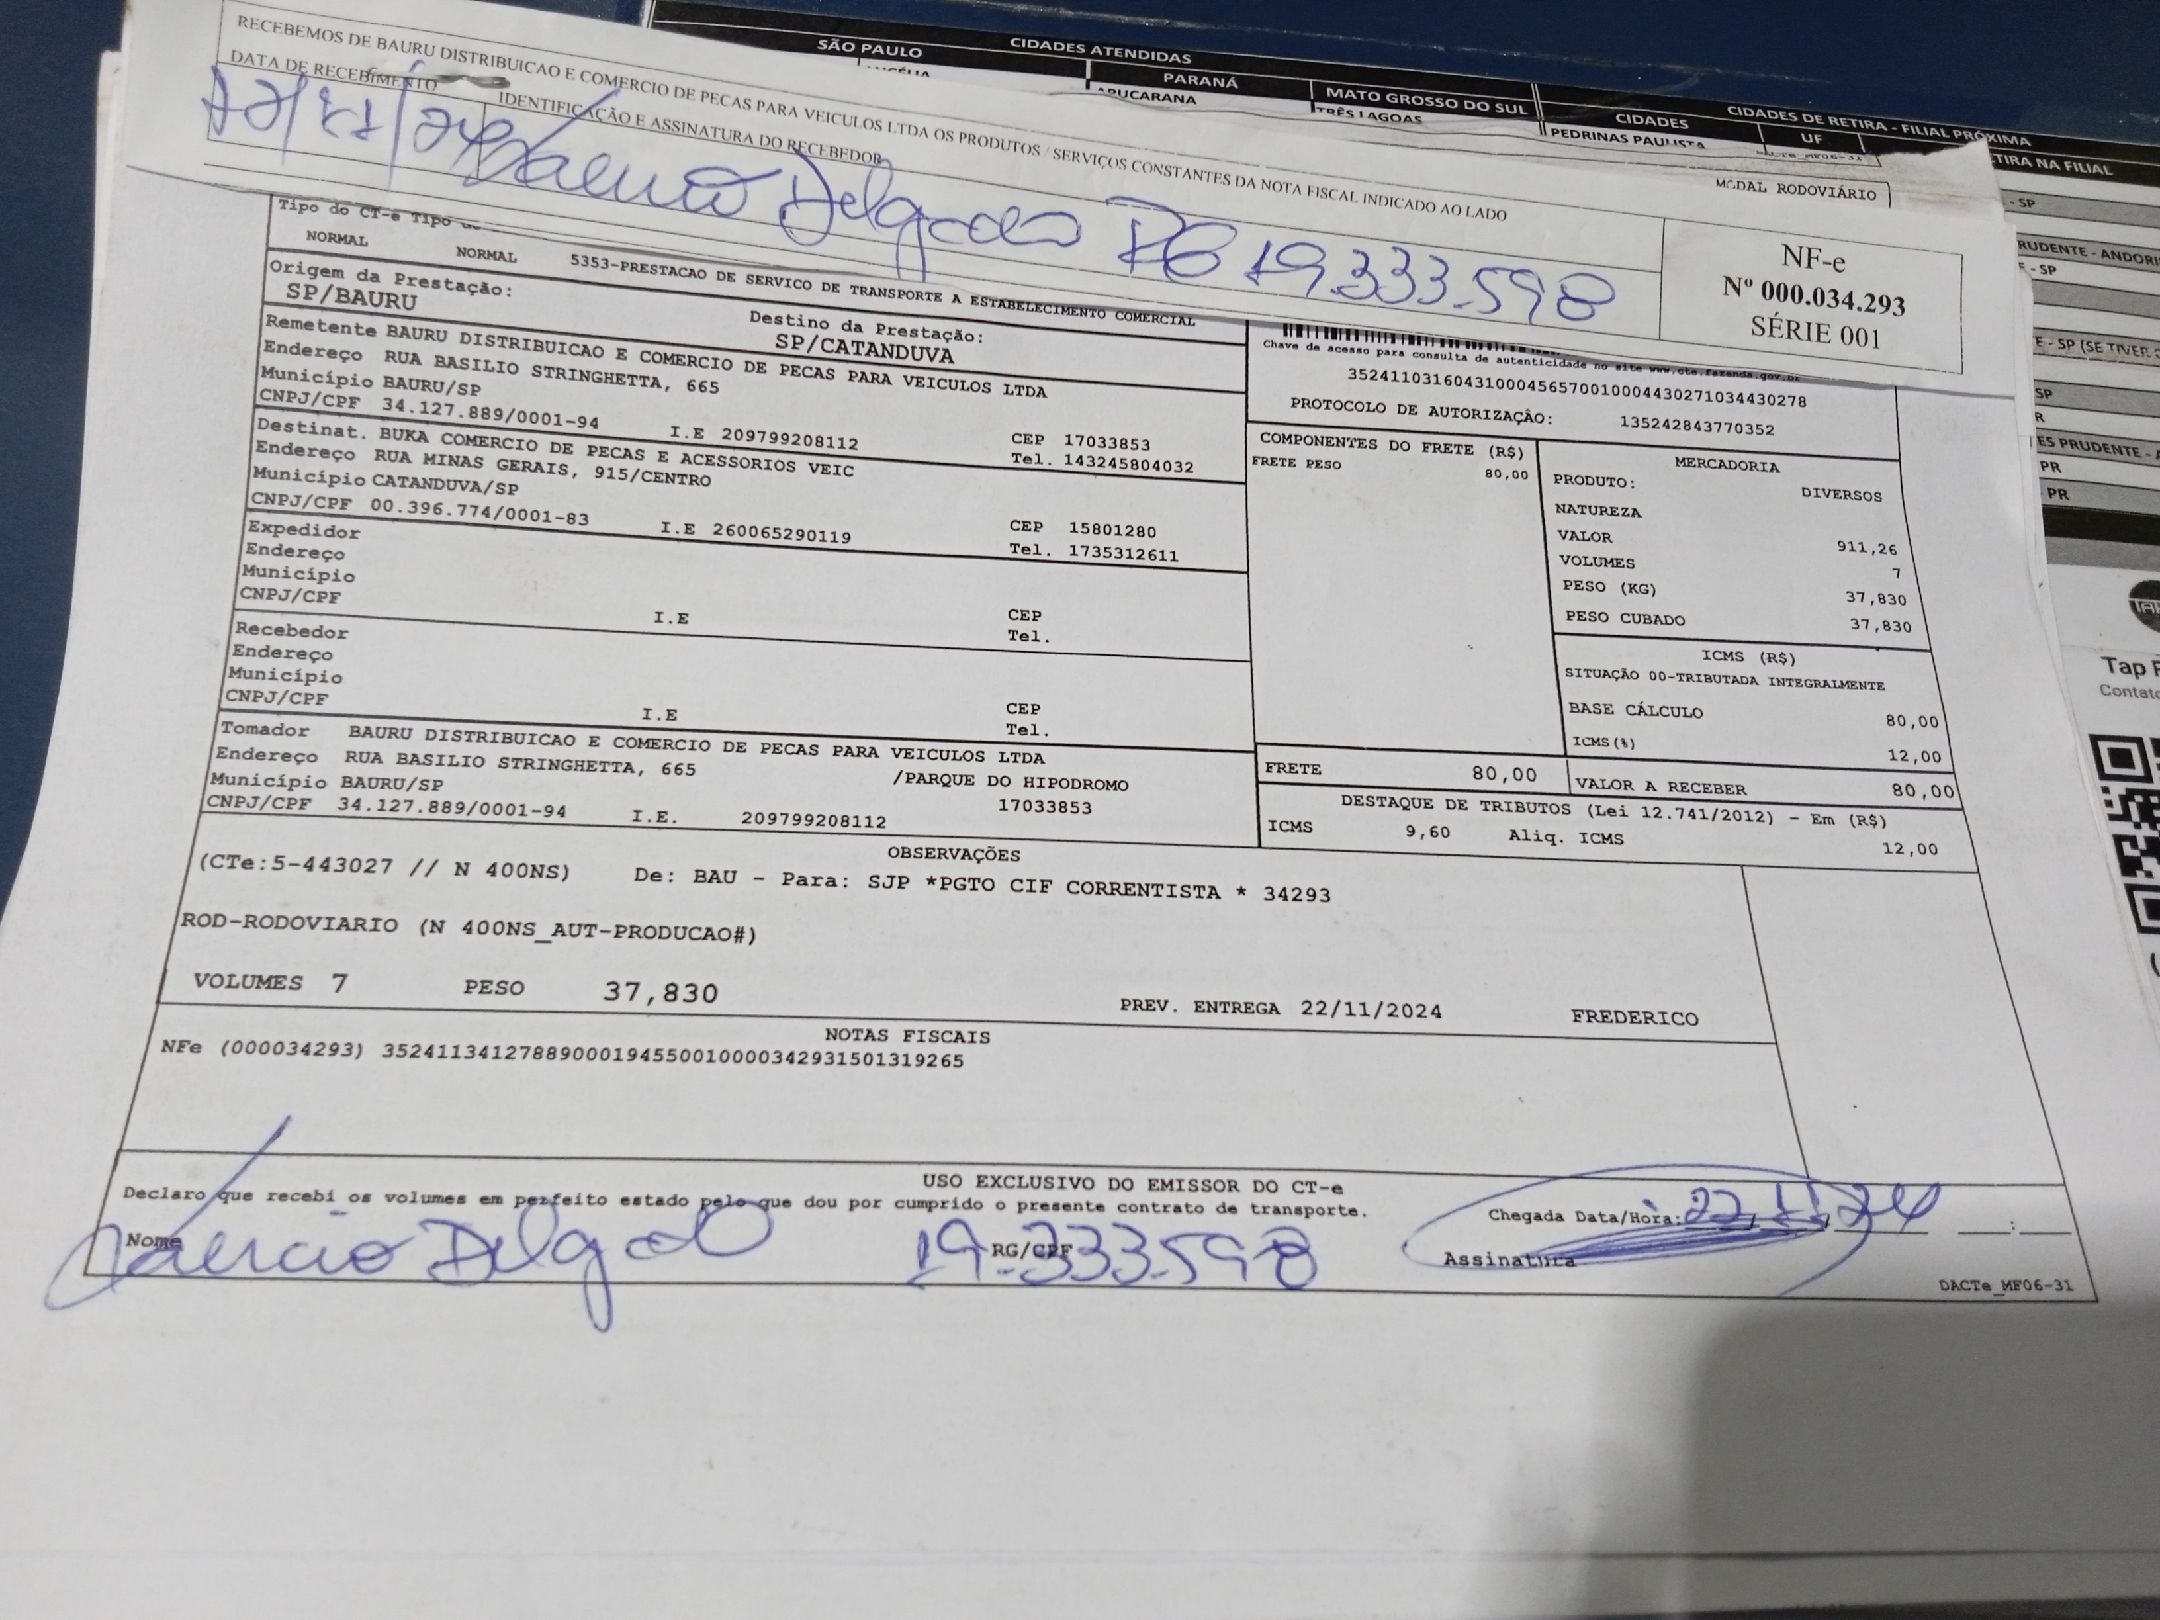 CIDADES ATENDIDAS
SÃO PAULO
PARANÁ
MATO GROSSO DO SUL
CIDADES DE RETIRA - FILIAL PRÓXIMA
CIDADES
UF
TIRA NA FILIAL
APUCARANA
TRÊS LAGOAS
PEDRINAS PAULISTA
RECEBEMOS DE BAURU DISTRIBUICAO E COMERCIO DE PECAS PARA VEICULOS LTDA OS PRODUTOS / SERVIÇOS CONSTANTES DA NOTA FISCAL INDICADO AO LADO
DATA DE RECEBIMENTO
IDENTIFICAÇÃO E ASSINATURA DO RECEBEDOR
Delgado RG 19.333.598
NF-e
Nº 000.034.293
SÉRIE 001
MODAL RODOVIÁRIO
Tipo do CT-e Tipo
NORMAL NORMAL 5353-PRESTACAO DE SERVICO DE TRANSPORTE A ESTABELECIMENTO COMERCIAL
Origem da Prestação:
SP/BAURU
Destino da Prestação:
SP/CATANDUVA
Remetente BAURU DISTRIBUICAO E COMERCIO DE PECAS PARA VEICULOS LTDA
Endereço RUA BASILIO STRINGHETTA, 665
Município BAURU/SP CEP 17033853
CNPJ/CPF 34.127.889/0001-94 I.E 209799208112 Tel. 143245804032
Destinat. BUKA COMERCIO DE PECAS E ACESSORIOS VEIC
Endereço RUA MINAS GERAIS, 915/CENTRO
Município CATANDUVA/SP CEP 15801280
CNPJ/CPF 00.396.774/0001-83 I.E 260065290119 Tel. 1735312611
Expedidor
Endereço
Município CEP
CNPJ/CPF I.E Tel.
Recebedor
Endereço
Município CEP
CNPJ/CPF I.E Tel.
Tomador BAURU DISTRIBUICAO E COMERCIO DE PECAS PARA VEICULOS LTDA
Endereço RUA BASILIO STRINGHETTA, 665 /PARQUE DO HIPODROMO
Município BAURU/SP 17033853
CNPJ/CPF 34.127.889/0001-94 I.E. 209799208112
Chave de acesso para consulta de autenticidade no site www.cte.fazenda.gov.br
35241103160431000456570010004430271034430278
PROTOCOLO DE AUTORIZAÇÃO: 135242843770352
COMPONENTES DO FRETE (R$)
FRETE PESO 80,00
MERCADORIA
PRODUTO: DIVERSOS
NATUREZA
VALOR 911,26
VOLUMES 7
PESO (KG) 37,830
PESO CUBADO 37,830
ICMS (R$)
SITUAÇÃO 00-TRIBUTADA INTEGRALMENTE
BASE CÁLCULO 80,00
ICMS(%) 12,00
FRETE 80,00 VALOR A RECEBER 80,00
DESTAQUE DE TRIBUTOS (Lei 12.741/2012) - Em (R$)
ICMS 9,60 Aliq. ICMS 12,00
OBSERVAÇÕES
(CTe:5-443027 // N 400NS) De: BAU - Para: SJP *PGTO CIF CORRENTISTA * 34293
ROD-RODOVIARIO (N 400NS_AUT-PRODUCAO#)
VOLUMES 7 PESO 37,830 PREV. ENTREGA 22/11/2024 FREDERICO
NOTAS FISCAIS
NFe (000034293) 35241134127889000194550010000342931501319265
USO EXCLUSIVO DO EMISSOR DO CT-e
Declaro que recebi os volumes em perfeito estado pelo que dou por cumprido o presente contrato de transporte.
Chegada Data/Hora: 22/11/24 :
Nome Delgado RG/CPF 19.333.598 Assinatura
DACTe_MF06-31